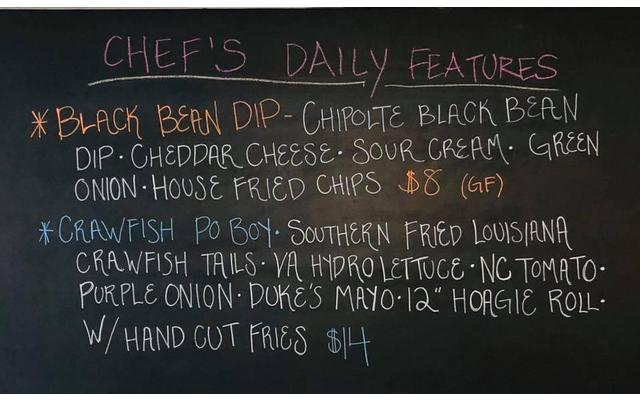 CHEF'S DAILY FEATURES
* BLACK BEAN DIP - CHIPOLTE BLACK BEAN
DIP · CHEDDAR CHEESE · SOUR CREAM · GREEN
ONION · HOUSE FRIED CHIPS $8 (GF)
* CRAWFISH PO BOY · SOUTHERN FRIED LOUISIANA
CRAWFISH TAILS · VA HYDRO LETTUCE · NC TOMATO ·
PURPLE ONION · DUKE'S MAYO · 12" HOAGIE ROLL ·
W/ HAND CUT FRIES $14